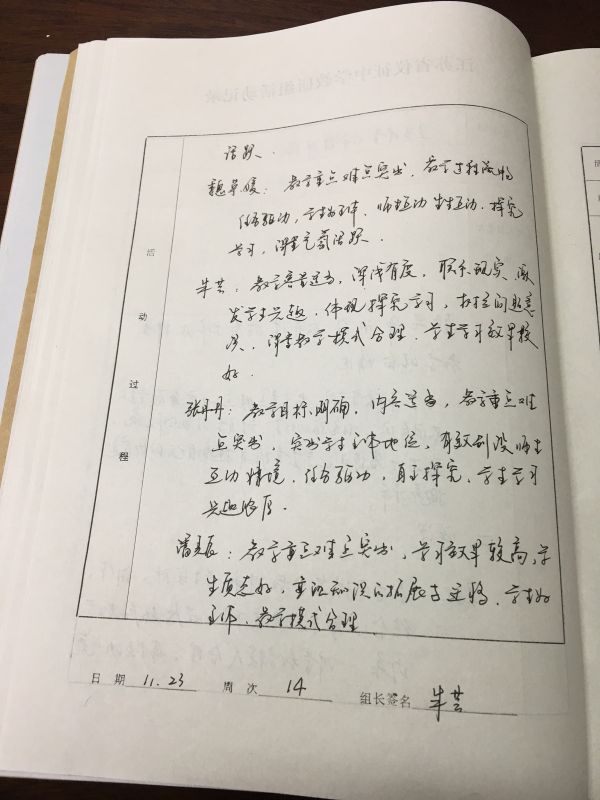 活跃.
魏草媛: 教学重点难点突出, 教学过程流畅
任务驱动, 学生为主体, 师生互动 生生互动. 探究
学习, 课堂气氛活跃.
朱芸: 教学容量适当, 深浅有度, 联系现实, 激
发学生兴趣, 体现探究学习,
课堂教学模式合理. 学生学习效果较
好.
张丹丹: 教学目标明确, 内容适当, 教学重点难
点突出, 突出学生主体地位, 有效创设师生
互动情境, 任务驱动, 自主探究, 学生学习
兴趣浓厚.
教学重点难点突出, 学习效果较高, 学
生质态好, 重视知识的拓展与迁移, 学生为
主体, 教学模式合理
活动过程
日期 11.23 周次 14 组长签名 朱芸